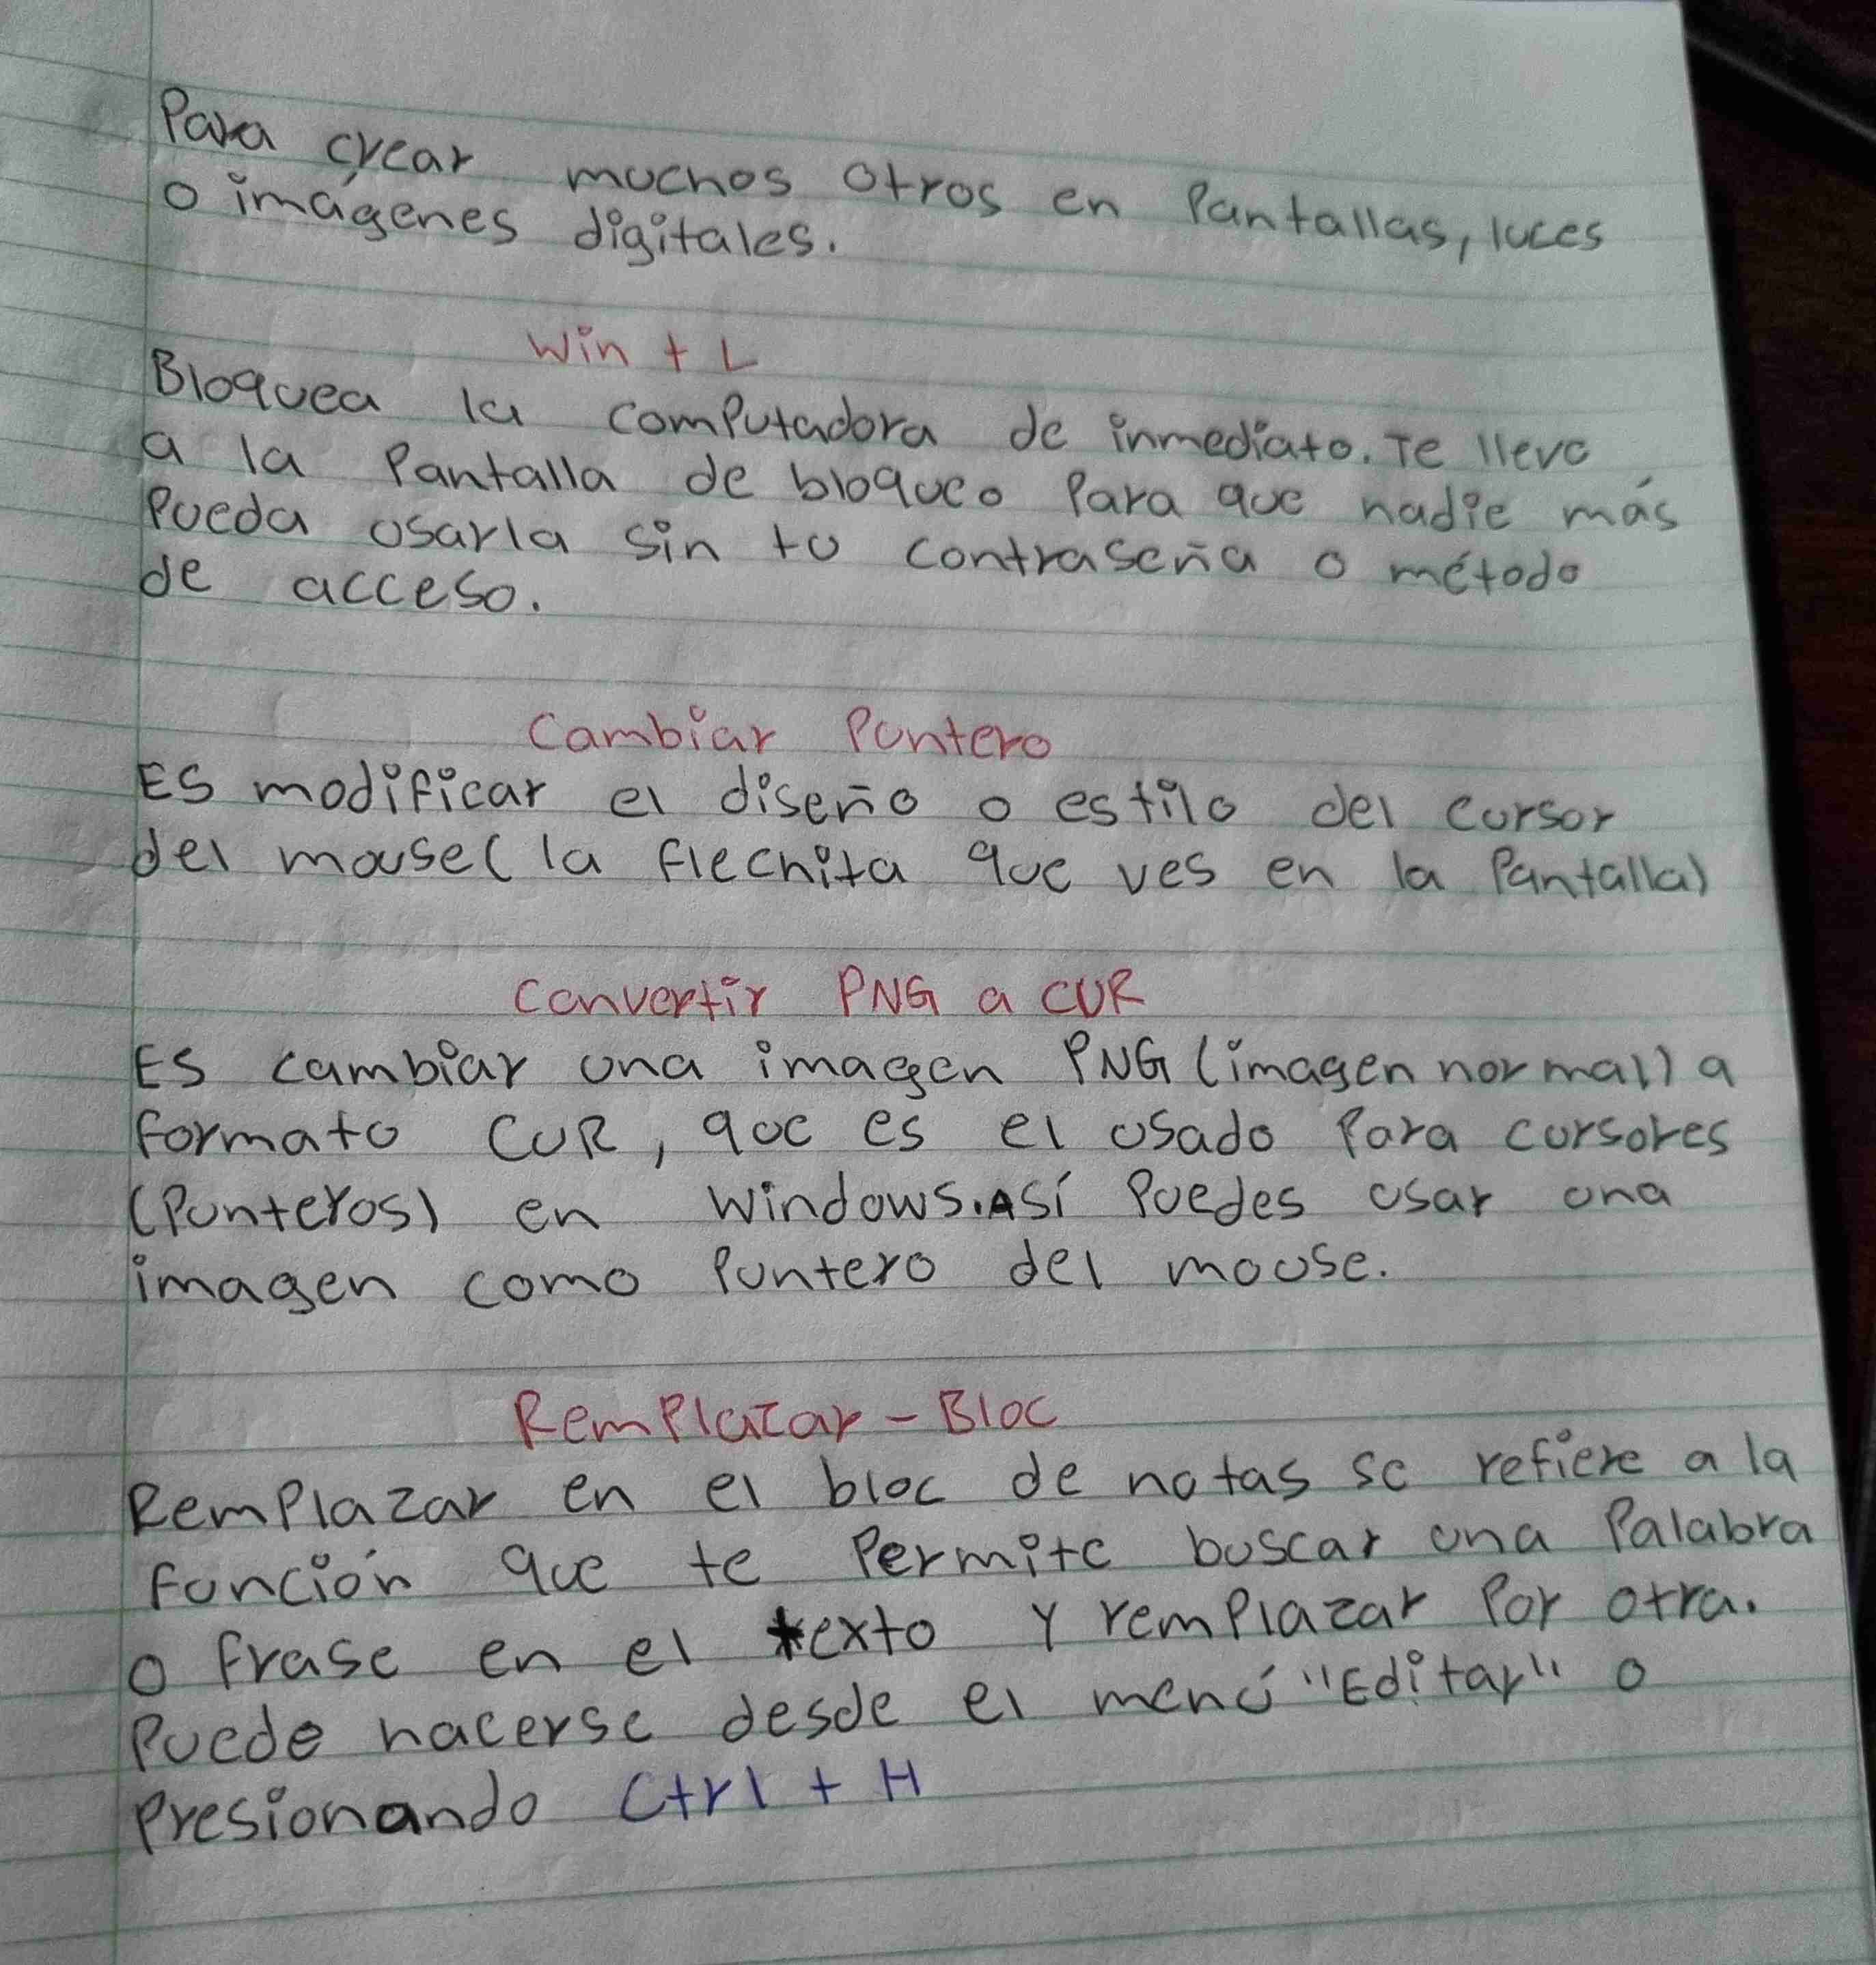 Para crear muchos otros en Pantallas, luces
o imágenes digitales.
Win + L
Bloquea la computadora de inmediato. Te lleva
a la Pantalla de bloqueo Para que nadie más
Pueda usarla sin tu contraseña o método
de acceso.
Cambiar Puntero
ES modificar el diseño o estilo del cursor
del mouse( la flechita que ves en la Pantalla)
Convertir PNG a CUR
ES cambiar una imagen PNG (imagen normal) a
formato CUR, que es el usado Para cursores
(Punteros) en Windows. Así Puedes usar una
imagen como Puntero del mouse.
RemPlazar - Bloc
RemPlazar en el bloc de notas se refiere a la
función que te Permite buscar una Palabra
o frase en el texto y remPlazar Por otra.
Puede hacerse desde el menú "Editar" o
Presionando Ctrl + H